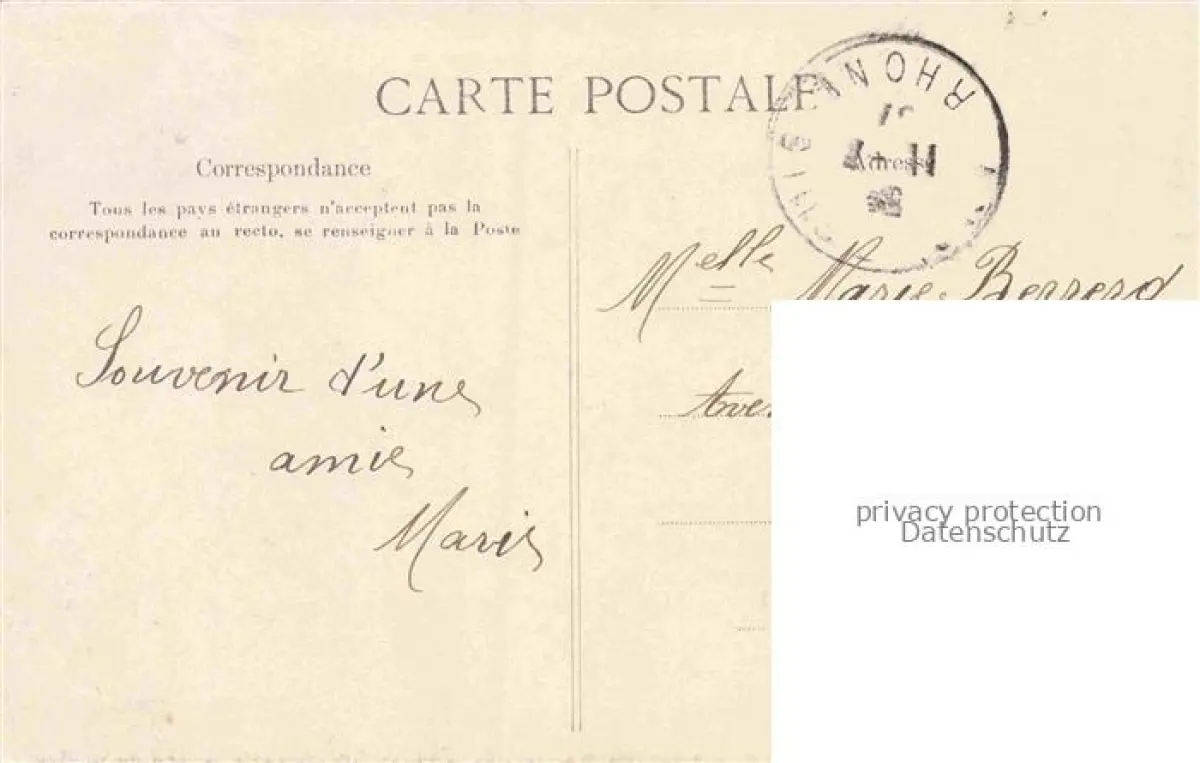 CARTE POSTALE
RHONE
Correspondance
Adresse
Tous les pays étrangers n'acceptent pas la
correspondance au recto, se renseigner à la Poste
Melle Marie
Souvenir d'une
amie
Marie
Ave.
privacy protection
Datenschutz